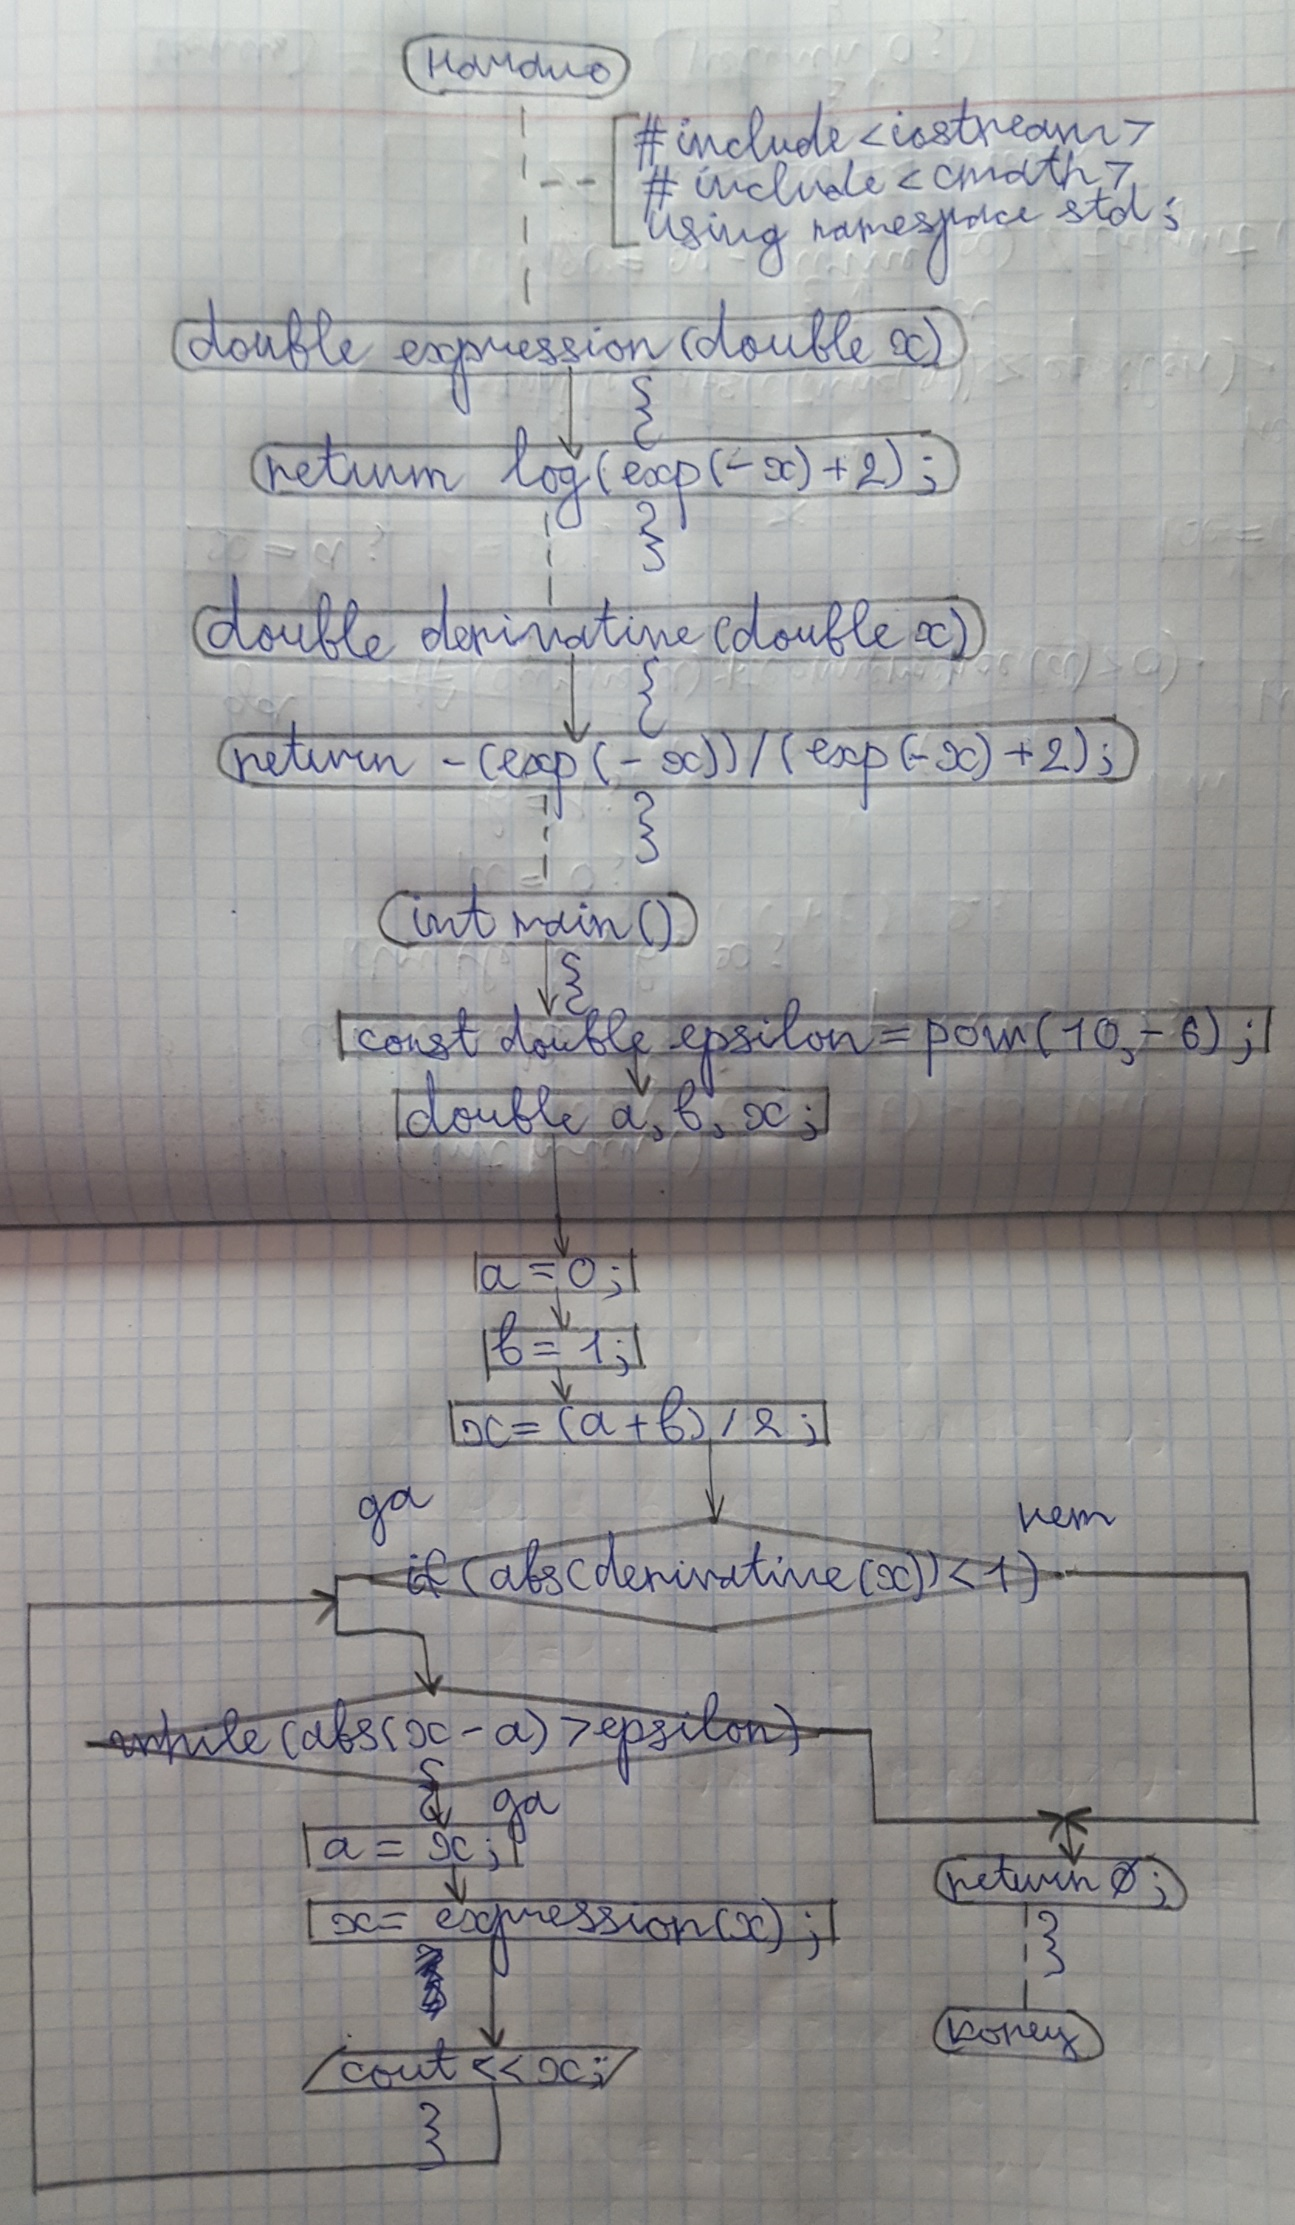 начало
#include <iostream>
#include <cmath>
using namespace std;
double expression (double x)
{
return log(exp(-x)+2);
}
double derivative (double x)
{
return -(exp(-x))/(exp(-x)+2);
}
int main()
{
const double epsilon = pow(10,-6);
double a, b, x;
a = 0;
b = 1;
x = (a+b)/2;
да
нет
if (abs(derivative(x))<1)
while (abs(x-a)>epsilon)
{
да
a = x;
return 0;
x = expression(x);
}
конец
cout << x;
}